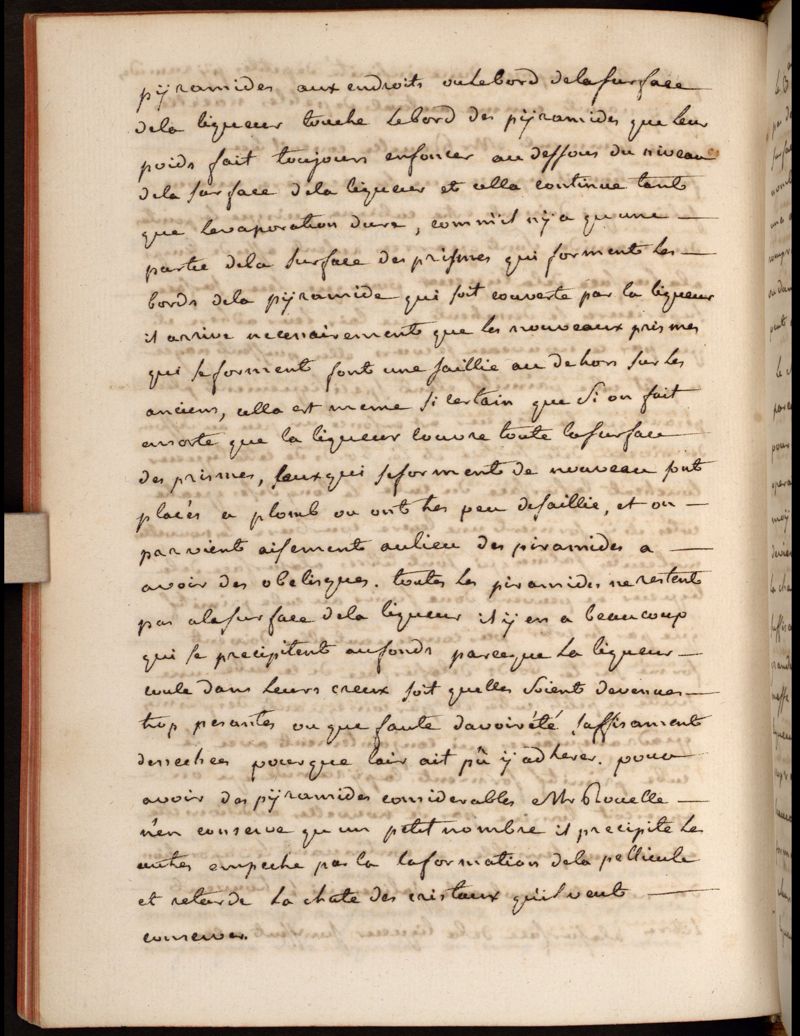 pÿramides aux endroits ou le bord de la surface
de la liqueur touche le bord des pÿramides que leur
poids fait toujours enfoncer au dessous du niveau
de la surface de la liqueur et cella continue tant
que levaporation dure, comm'il n'ÿ a qu'une
partie de la surface des prismes qui forment les
bords de la pÿramide qui soit couverte par la liqueur
il arrive necessairement que les nouveaux prismes
qui se forment font une saillie au dehors sur les
anciens, cella est meme si certain que si on fait
ensorte que la liqueur couvre toute la surface
des prismes, ceux qui se forment de nouveau sont
placés a plomb ou ont tres peu de saillie, et on
parvient aisement au lieu des piramides a
avoir des obelisques. toutes les piramides ne restent
pas a la surface de la liqueur il ÿ en a beaucoup
qui se precipitent au fonds parceque la liqueur
coule dans leurs creux soit quelles soient devenues
trop pesantes ou que faute davoir été suffisament
dessechées pour que lair ait pû ÿ adherer. pour
avoir des pÿramides considerables Mr Rouelle
n'en conserve qu'un petit nombre il precipite les
autres empeche par la la formation de la pellicule
et retarde la chute des cristaux qu'il veut
conserver.